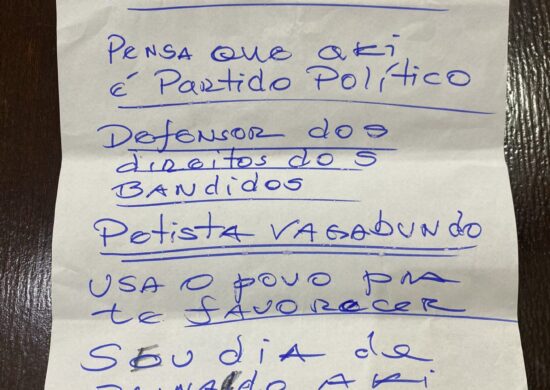 PENSA que aki
é Partido Político
DEFENSOR dos
direitos dos
BANdidos
Petista VAGAbUNdo
USA O povo pRA
te FAVORECER
SEU dIA de
AKi